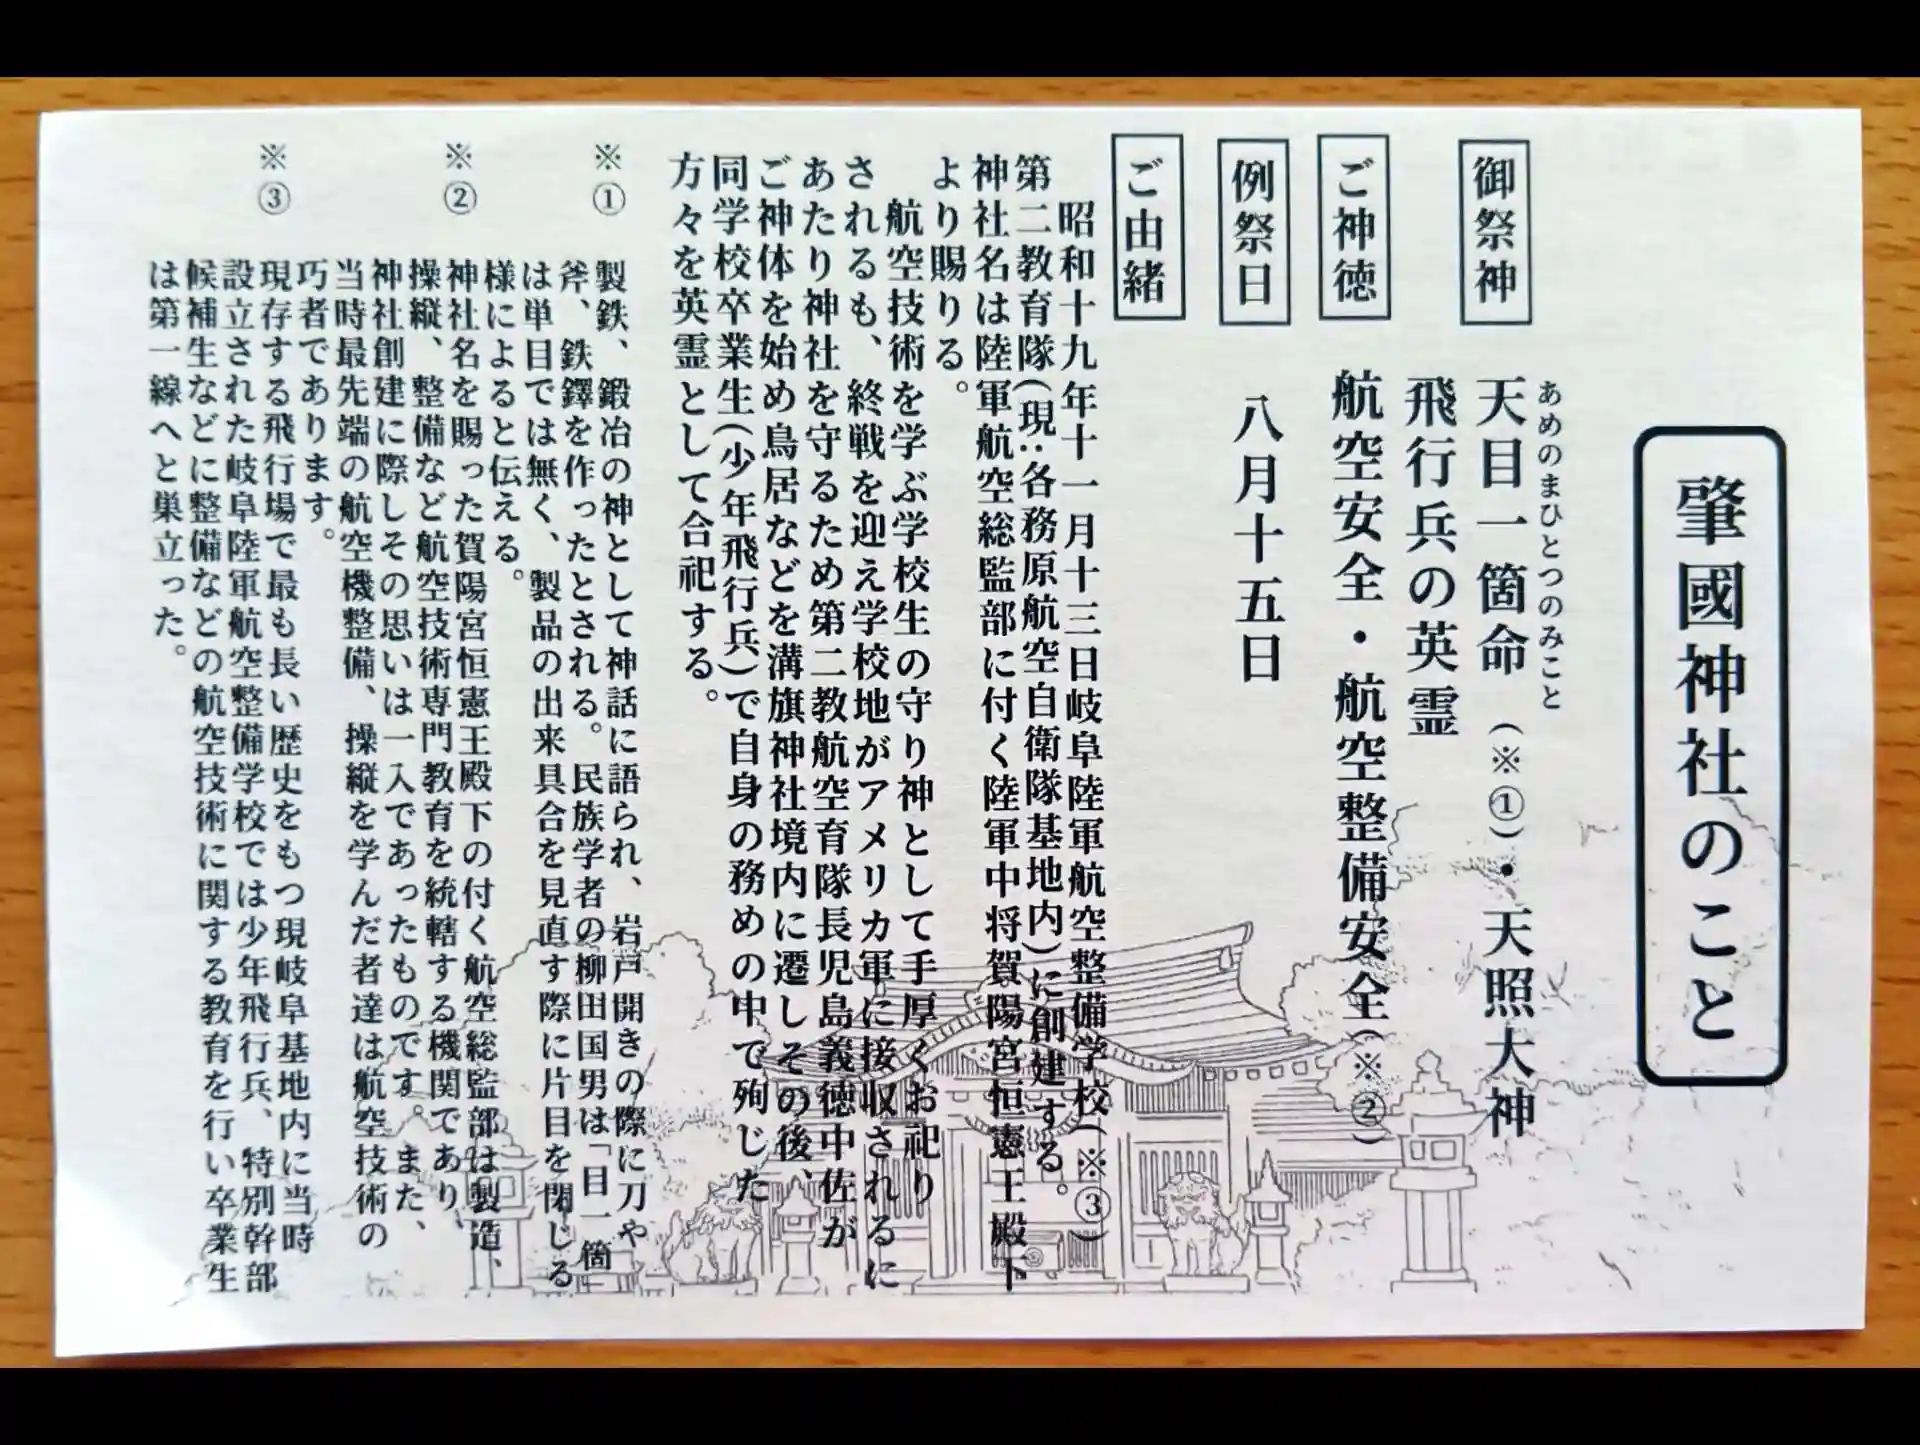 肇國神社のこと
御祭神
あめのまひとつのみこと
天目一箇命(※①)・天照大神
飛行兵の英霊
ご神徳
航空安全・航空整備安全(※②)
例祭日
八月十五日
ご由緒
昭和十九年十一月十三日岐阜陸軍航空整備学校(※③)
第二教育隊(現:各務原航空自衛隊基地内)に創建する。
神社名は陸軍航空総監部に付く陸軍中将賀陽宮恒憲王殿下
より賜りる。
航空技術を学ぶ学校生の守り神として手厚くお祀り
されるも、終戦を迎え学校地がアメリカ軍に接収されるに
あたり神社を守るため第二教航空育隊長児島義徳中佐が
ご神体を始め鳥居などを溝旗神社境内に遷しその後、
同学校卒業生(少年飛行兵)で自身の務めの中で殉じた
方々を英霊として合祀する。
※①
製鉄、鍛冶の神として神話に語られ、岩戸開きの際に刀や
斧、鉄鐸を作ったとされる。民族学者の柳田国男は「目一箇
は単目では無く、製品の出来具合を見直す際に片目を閉じる
様によると伝える。
※②
神社名を賜った賀陽宮恒憲王殿下の付く航空総監部は製造、
操縦、整備など航空技術専門教育を統轄する機関であり、
神社創建に際しその思いは一入であったものです。また、
当時最先端の航空機整備、操縦を学んだ者達は航空技術の
巧者であります。
※③
現存する飛行場で最も長い歴史をもつ現岐阜基地内に当時
設立された岐阜陸軍航空整備学校では少年飛行兵、特別幹部
候補生などに整備などの航空技術に関する教育を行い卒業生
は第一線へと巣立った。